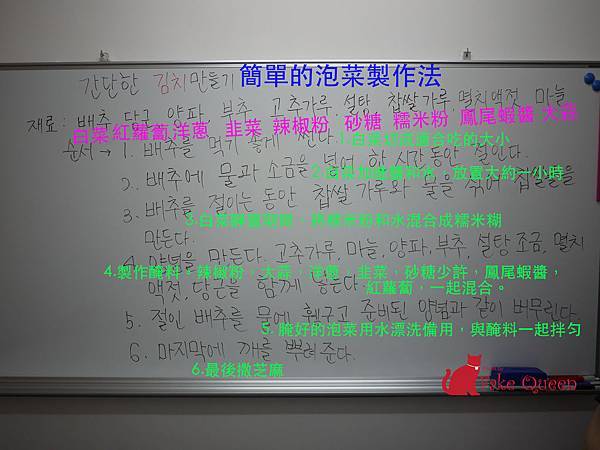 간단한 김치만들기 簡單的泡菜製作法
재료: 배추, 당근, 양파, 부추, 고추가루, 설탕, 찹쌀가루, 멸치액젓, 마늘
白菜 紅蘿蔔 洋蔥 韭菜 辣椒粉 砂糖 糯米粉 鳳尾蝦醬 大蒜
순서 → 1. 배추를 먹기 좋게 썬다.
1.白菜切成適合吃的大小
2. 배추에 물과 소금을 넣어 한 시간동안 절인다.
2.白菜加進鹽和水,放置大約一小時
3. 배추를 절이는 동안 찹쌀가루와 물을 섞어 찹쌀풀을
3.白菜醃鹽期間,將糯米粉和水混合成糯米糊
만든다.
4. 양념을 만든다. 고추가루, 마늘, 양파, 부추, 설탕 조금, 멸치
4.製作醃料,辣椒粉,大蒜,洋蔥,韭菜,砂糖少許,鳳尾蝦醬,
액젓, 당근을 함께 넣는다.
紅蘿蔔,一起混合。
5. 절인 배추를 물에 헹구고 준비된 양념과 같이 버무린다.
5.醃好的泡菜用水漂洗備用,與醃料一起拌勻
6. 마지막에 깨를 뿌려준다.
6.最後撒芝麻
Cake Queen